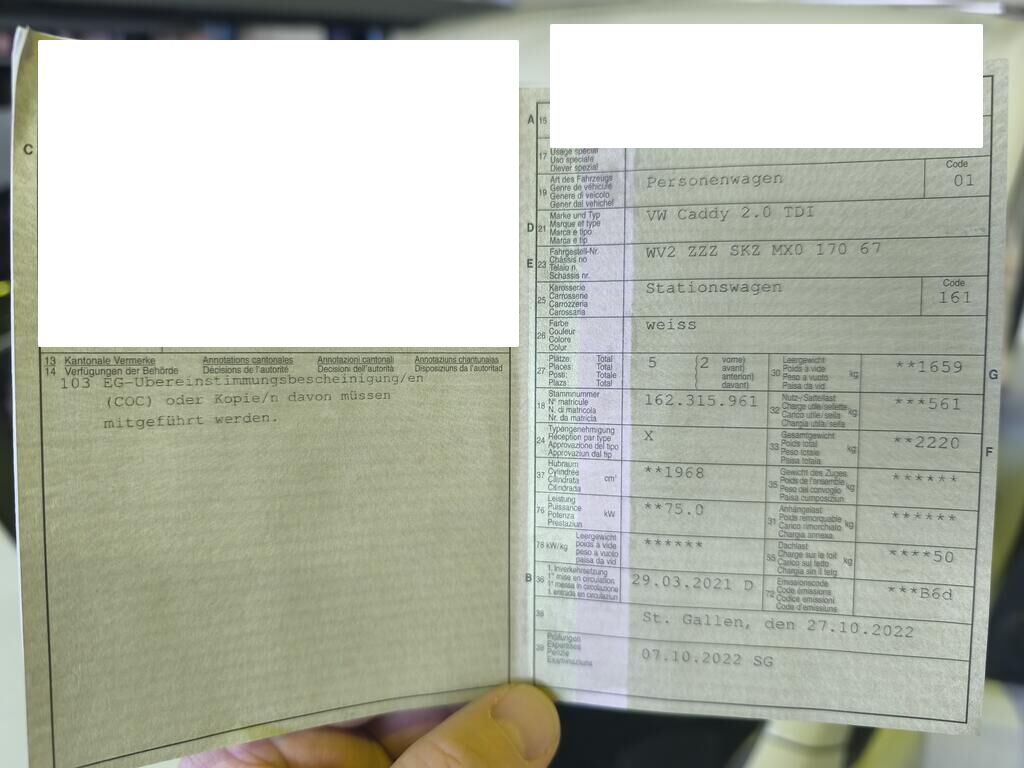 C
13 Kantonale Vermerke Annotations cantonales Annotazioni cantonali Annotaziuns chantunalas
14 Verfügungen der Behörde Décisions de l'autorité Decisioni dell'autorità Disposiziuns da l'autoritad
103 EG-Übereinstimmungsbescheinigung/en
(COC) oder Kopie/n davon müssen
mitgeführt werden.
A 15
17 Usage spécial
Uso speciale
Diever spezial
19 Art des Fahrzeugs
Genre de véhicule
Genere di veicolo
Gener dal vehichel
Personenwagen
Code
01
D 21 Marke und Typ
Marque et type
Marca e tipo
Marca e tip
VW Caddy 2.0 TDI
E 23 Fahrgestell-Nr.
Châssis no
Telaio n.
Schassis nr.
WV2 ZZZ SKZ MX0 170 67
25 Karosserie
Carrosserie
Carrozzeria
Carossaria
Stationswagen
Code
161
26 Farbe
Couleur
Colore
Colur
weiss
27 Plätze: Total
Places: Total
Posti: Totale
Plazs: Total
5 (2 vorne)
avant)
anteriori)
davant)
30 Leergewicht
Poids à vide
Peso a vuoto
Paisa da vid
kg
**1659
G
18 Stammnummer
N° matricule
N. di matricola
Nr. da matricla
162.315.961
32 Nutz-/Sattellast
Charge utile/sellette
Carico utile/sella
Chargia utila/sella
kg
***561
24 Typengenehmigung
Réception par type
Approvazione del tipo
Approvaziun dal tip
X
33 Gesamtgewicht
Poids total
Peso totale
Paisa totala
kg
**2220
F
37 Hubraum
Cylindrée
Cilindrata
Cilindrada
cm³
**1968
35 Gewicht des Zuges
Poids de l'ensemble
Peso del convoglio
Paisa cumposiziun
kg
******
76 Leistung
Puissance
Potenza
Prestaziun
kW
**75.0
31 Anhängelast
Poids remorquable
Carico rimorchiato
Chargia annexa
kg
******
78 kW/kg Leergewicht
poids à vide
peso a vuoto
paisa da vid
******
55 Dachlast
Charge sur le toit
Carico sul tetto
Chargia sin il tetg
kg
****50
B 36 1. Inverkehrsetzung
1re mise en circulation
1a messa in circolazione
1. entrada en circulaziun
29.03.2021 D
72 Emissionscode
Code émissions
Codice emissioni
Code d'emissiuns
***B6d
38
St. Gallen, den 27.10.2022
39 Prüfungen
Expertises
Perizie
Examinaziuns
07.10.2022 SG